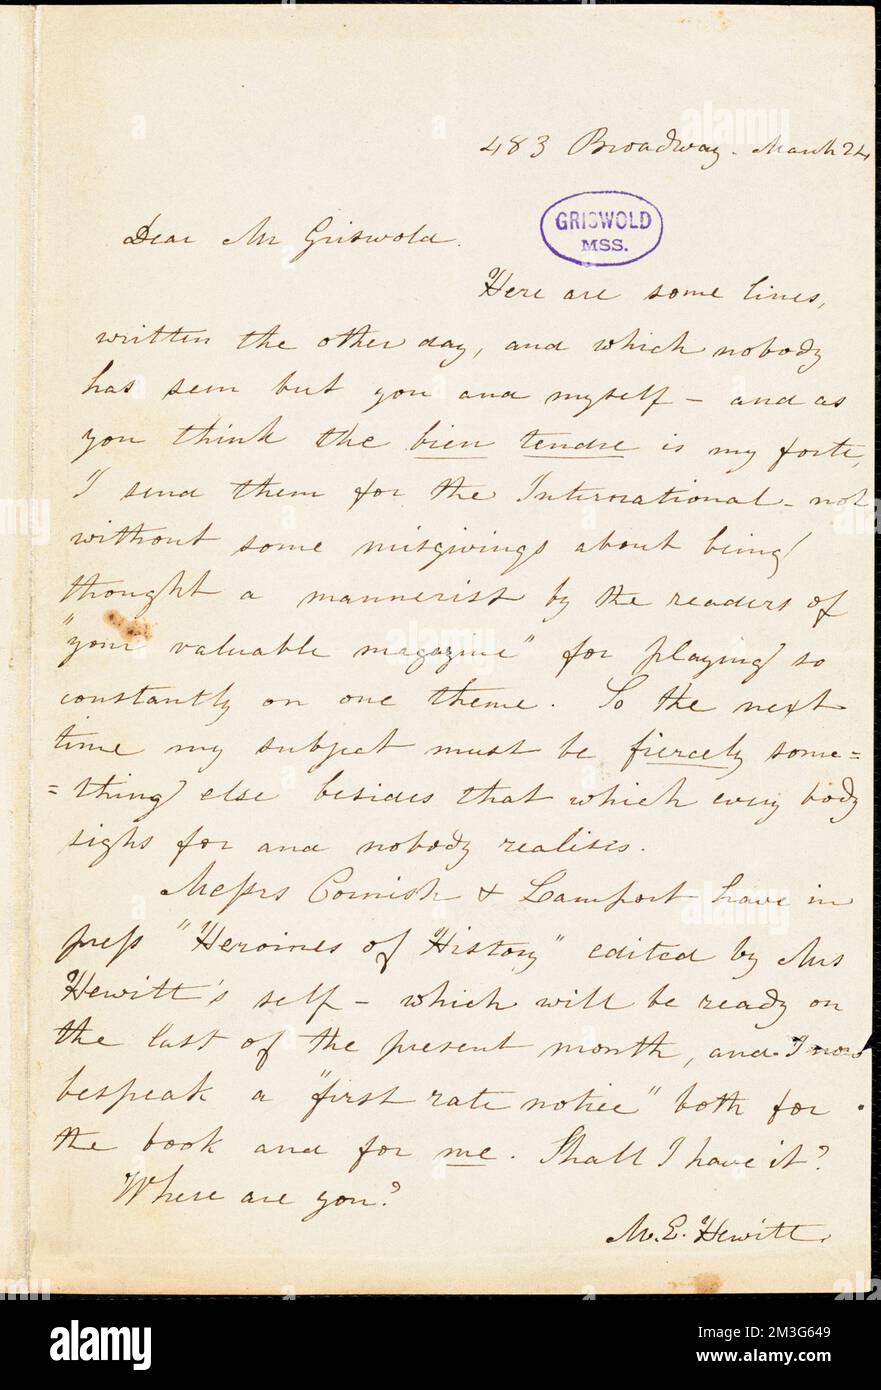 483 Broadway. March 24
Dear Mr Griswold.
GRISWOLD
MSS.
Here are some lines,
written the other day, and which nobody
has seen but you and myself – and as
you think the bien tendre is my forte,
I send them for the International – not
without some misgivings about being
thought a mannerist by the readers of
"your valuable magazine" for playing so
constantly on one theme. So the next
time my subject must be fiercely some=
=thing else besides that which every body
sighs for and nobody realises.
Messrs Cornish & Lamport have in
press "Heroines of History" edited by Mrs
Hewitt's self – which will be ready on
the last of the present month, and I now
bespeak a "first rate notice" both for
the book and for me. Shall I have it?
Where are you?
M. E. Hewitt.
alamy
Image ID: 2M3G649
www.alamy.com